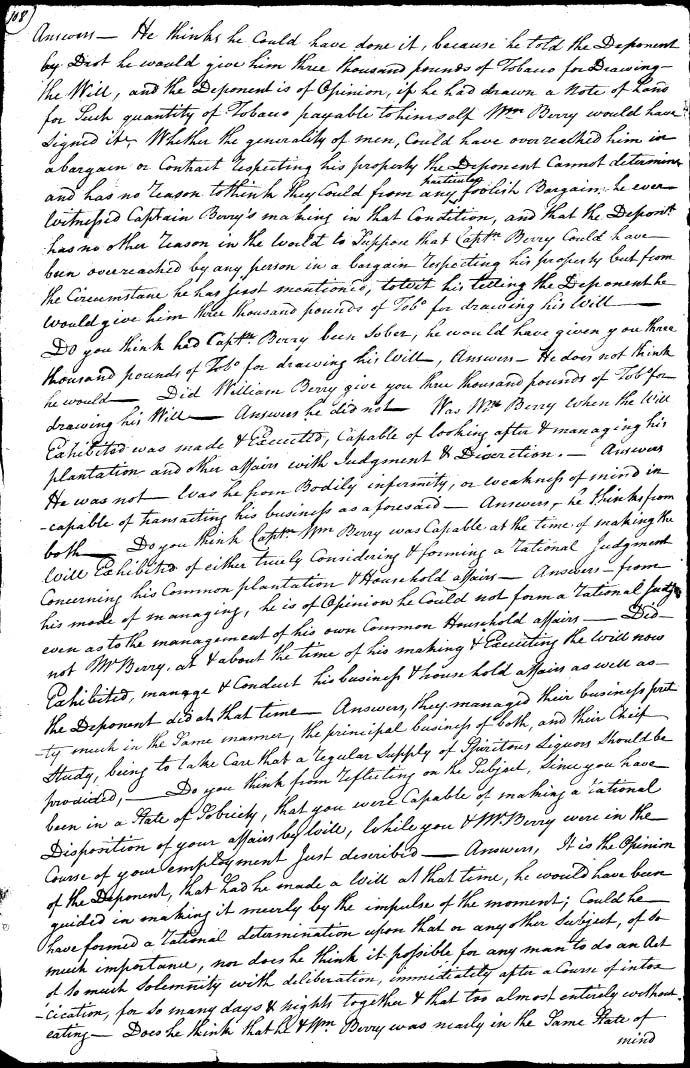 108
Answers — He thinks he Could have done it, because he told the Deponent
by Drst he would give him three thousand pounds of Tobacco for Drawing
the Will, and the Deponent is of Opinion, if he had drawn a Note of hand
for Such quantity of Tobacco payable to himself Wm Berry would have
signed it, Whether the generality of men, Could have overreached him in
a bargain or Contract respecting his property the Deponent Cannot determine
and has no reason to think they Could from any particular foolish Bargain, he ever
Witnessed Captain Berry's making in that Condition, and that the Depont
has no other reason in the World to Suppose that Captn Berry Could have
been overreached by any person in a bargain respecting his property but from
the Circumstance he has just mentioned, towit his telling the Deponent he
would give him three thousand pounds of Tobo for drawing his Will —
Do you think had Captn Berry been Sober, he would have given you three
thousand pounds of Tobo for drawing his Will, Answers — He does not think
he would — Did William Berry give you three thousand pounds of Tobo for
drawing his Will — Answers he did not — Was Wm Berry When the Will
Exhibited was made & Executed, Capable of looking after & managing his
plantation and other affairs with Judgment & Discretion. — Answers
He was not — Was he from Bodily infirmity, or weakness of mind in
-capable of transacting his business as aforesaid — Answers, he thinks from
both — Do you think Captn Wm Berry was Capable at the time of making the
Will Exhibited of either truely Considering & forming a rational Judgment
Concerning his Common plantation & Household affairs — Answers — from
his mode of managing, he is of Opinion he Could not form a rational Judgt
even as to the management of his own Common Household affairs — Did
not Mr Berry, at & about the time of his making & Executing the will now
Exhibited, manage & Conduct his business & household affairs as well as
the Deponent did at that time — Answers, they managed their business pret
-ty much in the Same manner, the principal business of both, and their Chief
Study, being to take Care that a regular Supply of Spiritous Liquors Should be
provided, — Do you think from reflecting on the Subject, Since you have
been in a State of Sobriety, that you were Capable of making a rational
Disposition of your affairs by Will, While you & Mr Berry were in the
Course of your employment Just described — Answers, It is the Opinion
of the Deponent, that had he made a Will at that time, he would have been
guided in making it meerly by the impulse of the moment; Could he
have formed a rational determination upon that or any other Subject, of so
much importance, nor does he think it possible for any man to do an Act
of so much Solemnity with deliberation, immediately after a Course of intox
-ication, for so many days & nights together & that too almost entirely without
eating — Does he think that he & Wm Berry was nearly in the Same State of
mind